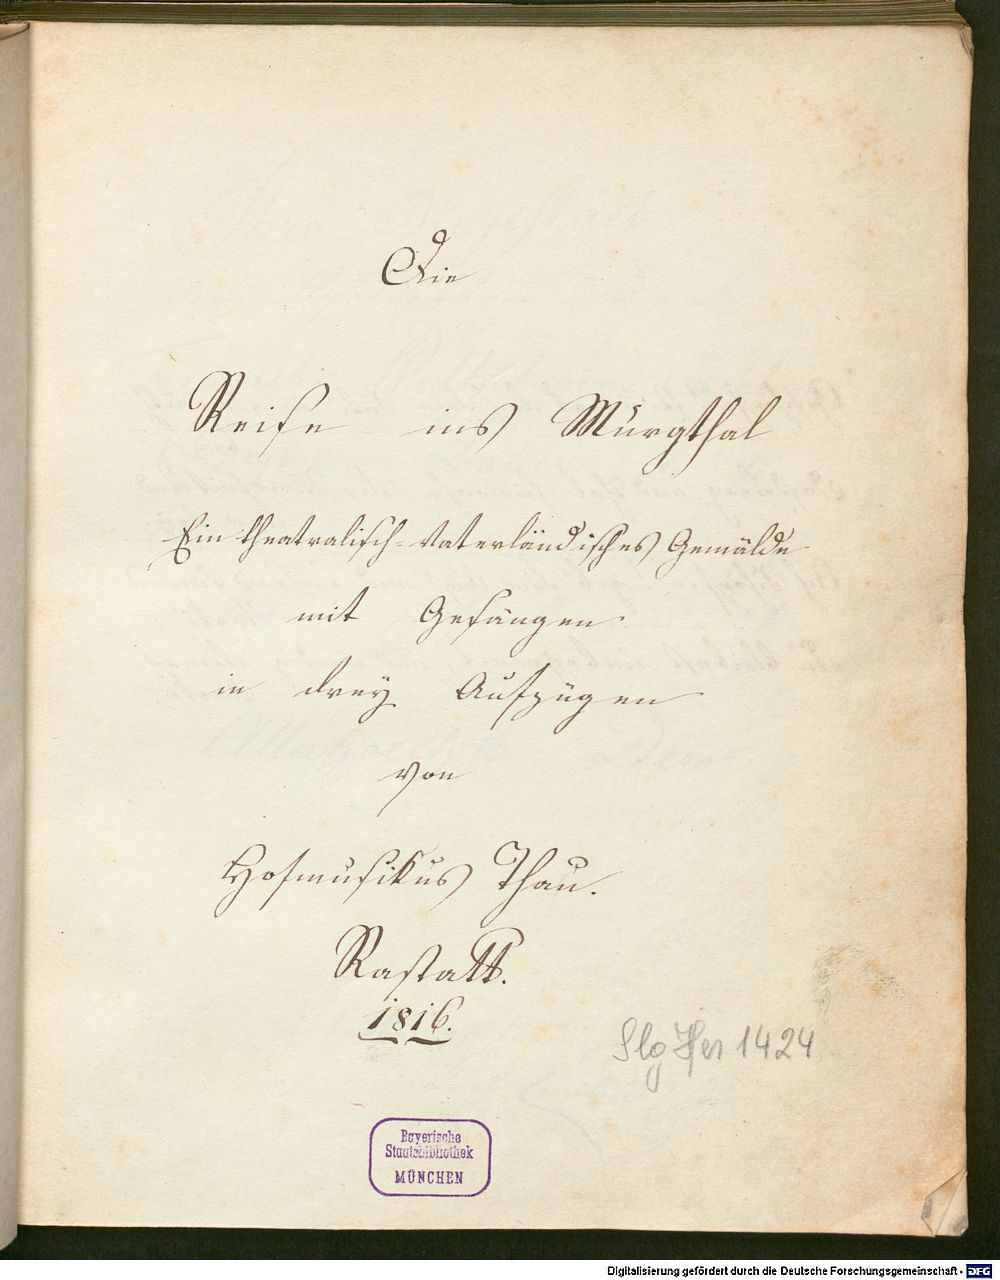 Die
Reise ins Murgthal
Ein theatralisch-vaterländisches Gemälde
mit Gesängen
in drey Aufzügen
von
Hofmusikus Thau.
Rastatt.
1816.
Slg Her 1424
Bayerische
Staatsbibliothek
MÜNCHEN
Digitalisierung gefördert durch die Deutsche Forschungsgemeinschaft - DFG